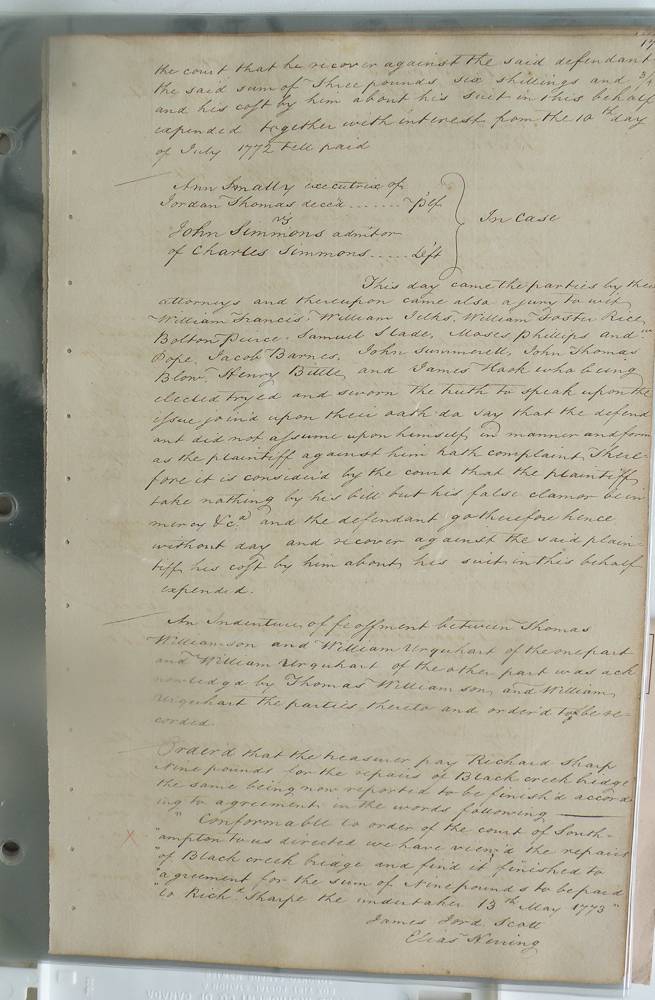 17
the court that he recover against the said defendant
the said sum of Three pounds six shillings and 3/4
and his cost by him about his suit in this behalf
expended together with interest from the 10th day
of July 1772 till paid
Ann Smally executrix of
Jordan Thomas decd ....... Plf
vs
John Simmons admitor
of Charles Simmons ..... Deft
In Case
This day came the parties by their
attorneys and thereupon came also a jury to wit
William Francis, William Jelks, William Foster Rice,
Bolton Peirce, Samuel Slade, Moses Phillips and Wm
Pope, Jacob Barnes, John Summerell, John Thomas
Blow, Henry Bittle, and James Hook who being
elected tryed and sworn the truth to speak upon the
issue joind upon their oath do say that the defend
ant did not assume upon himself in manner and form
as the plaintiff against him hath complaind There-
fore it is considerd by the court that the plaintiff
take nothing by his bill but his false clamor be in
mercy &ca and the defendant go therefore hence
without day and recover against the said plain
tiff his cost by him about his suit in this behalf
expended.
An Indenture of feoffment between Thomas
Williamson and William Urquhart of the one part
and William Urquhart of the other part was ack
nowledgd by Thomas Williamson and William
Urquhart the parties thereto and order'd to be re-
corded.
Orderd that the treasurer pay Richard Sharp
Nine pounds for the repairs of Black creek bridge
the same being now reported to be finish'd accord
ing to agreement in the words following
" Conformable to order of the court of South-
"ampton to us directed we have view'd the repairs
"of Black creek bridge and find it finished to
"agreement for the sum of Nine pounds to be paid
"to Richd Sharpe the undertaker 13th May 1773"
James Jord. Scott
Elias Herring